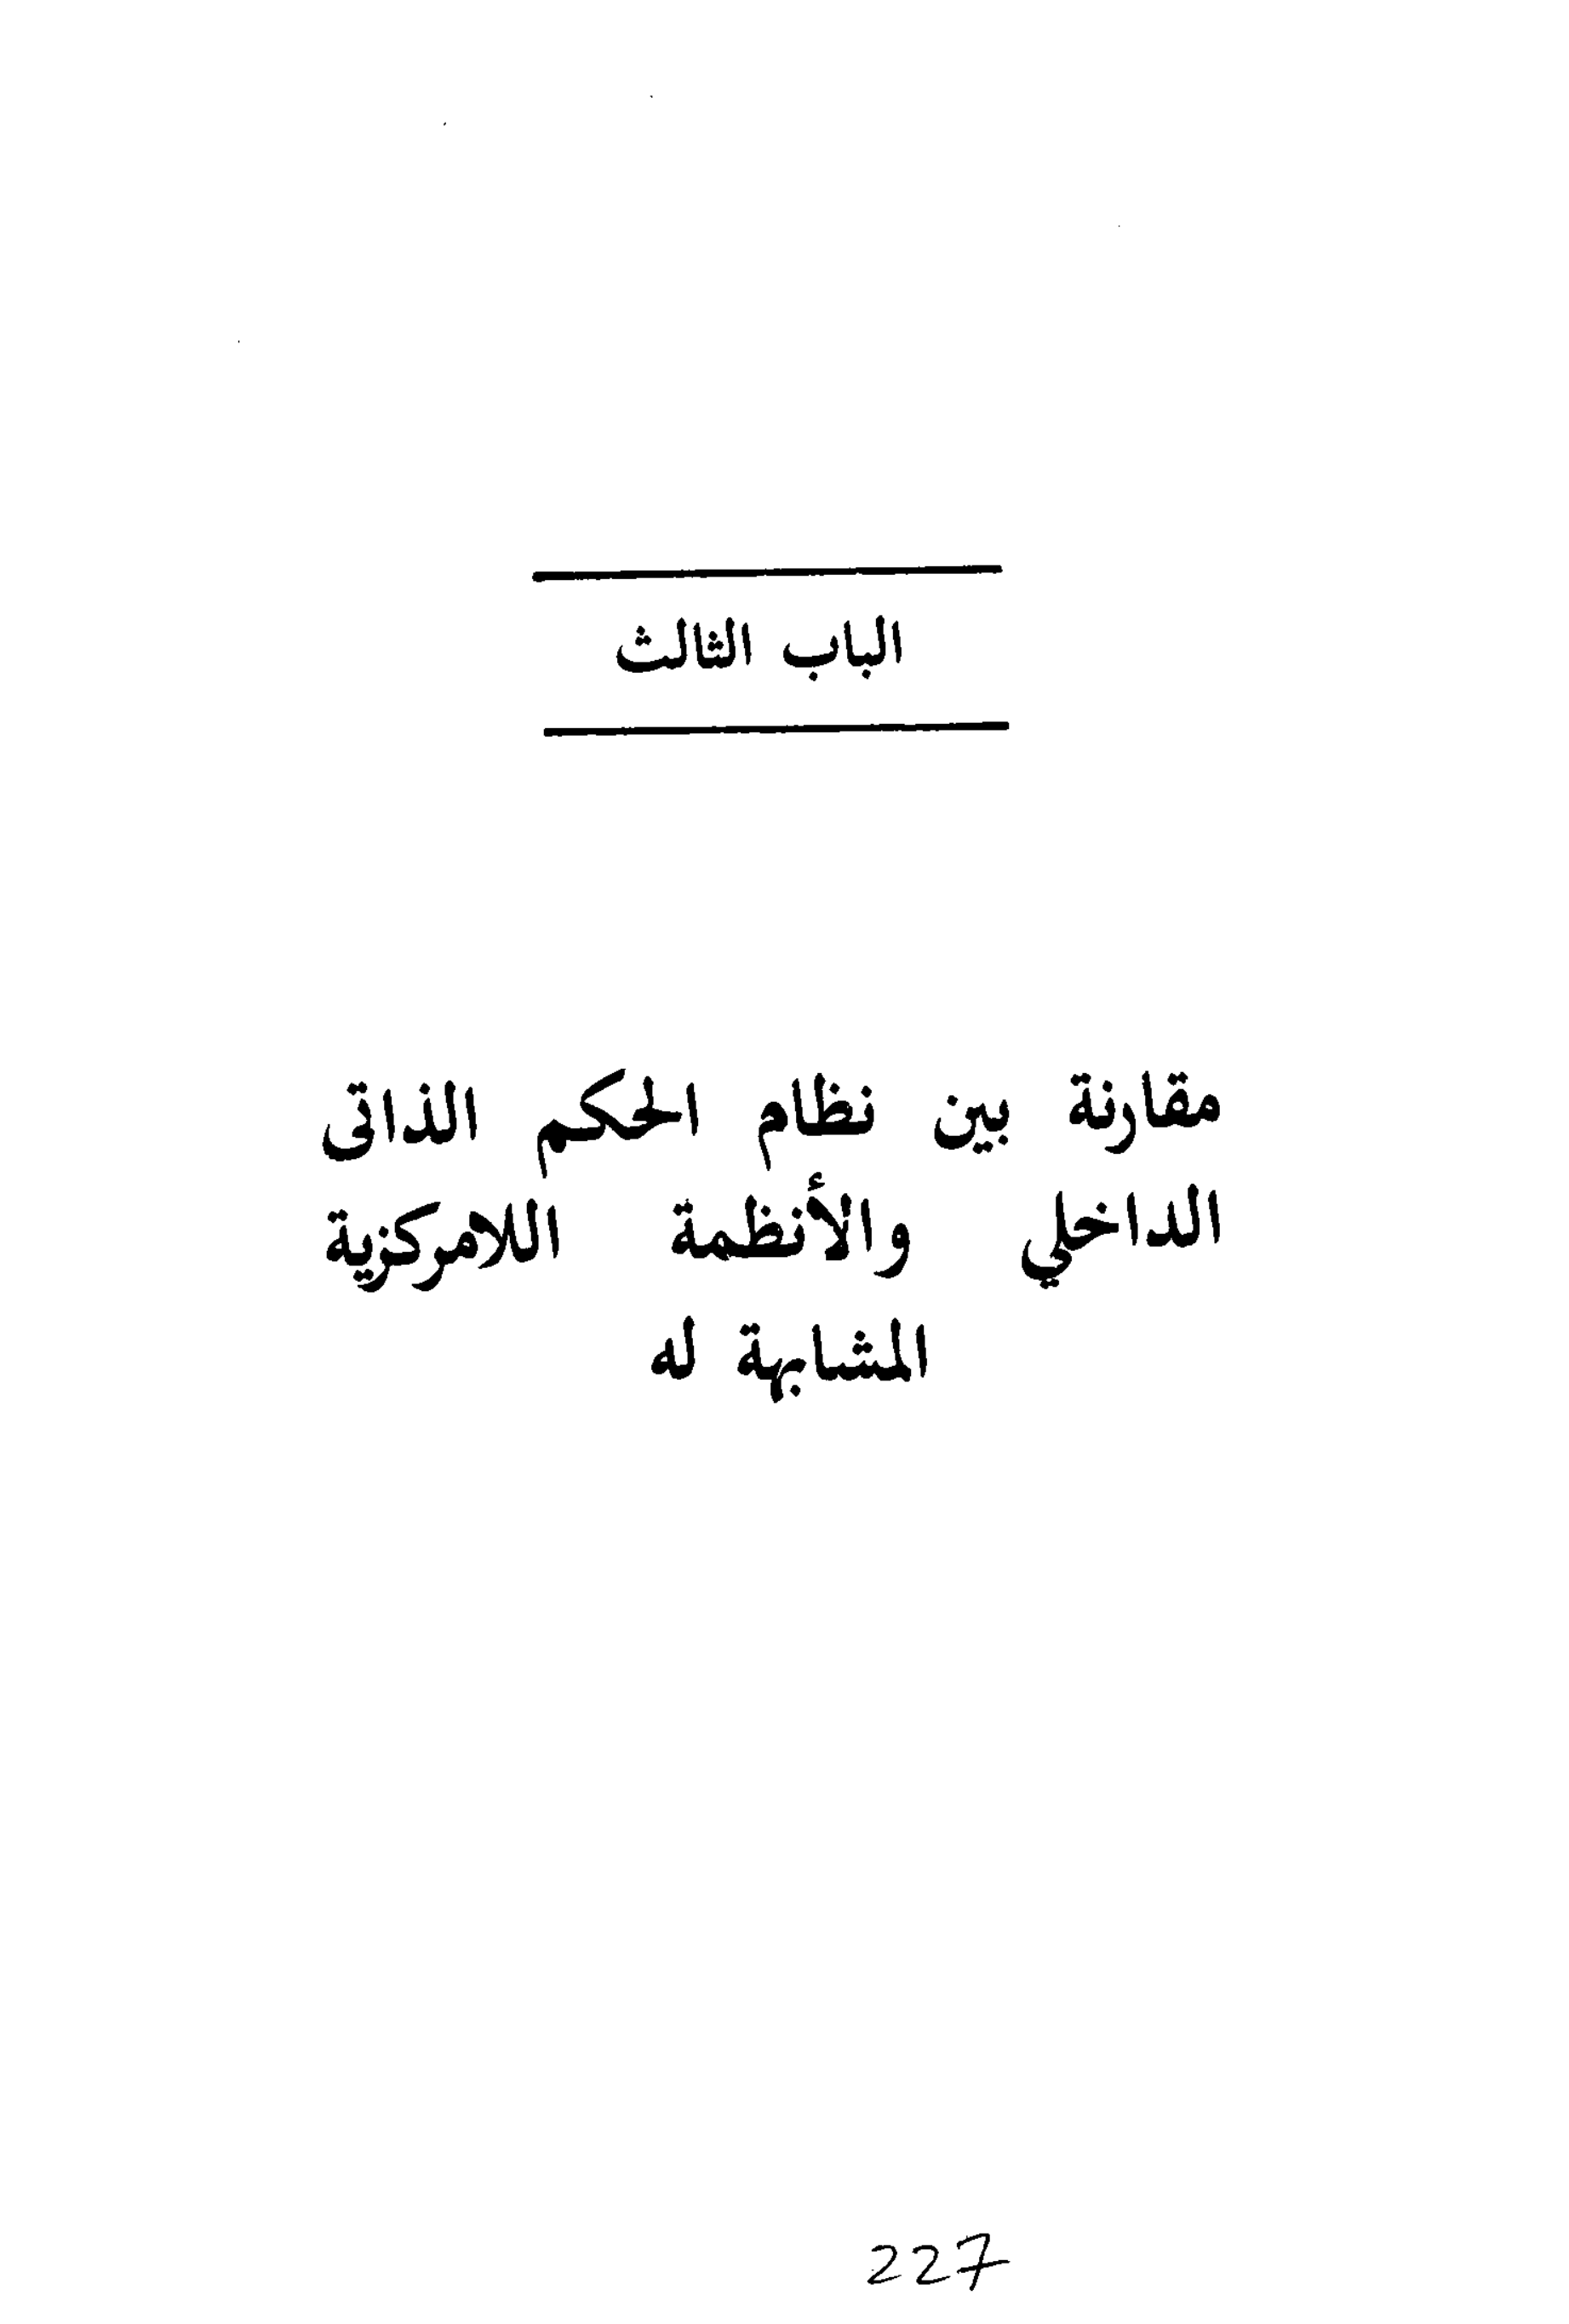 الباب الثالث
مقارنة بين نظام الحكم الذاتى
الداخلي والأنظمة اللامركزية
المشابهة له
227